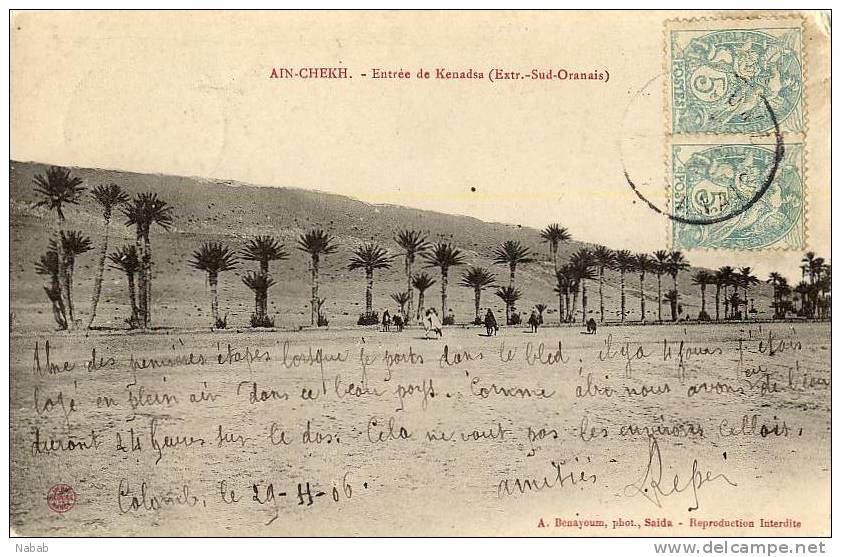 AIN-CHEKH. - Entrée de Kenadsa (Extr.-Sud-Oranais)
POSTES
5
POSTES
5
Une des premières étapes lorsque je pars dans le bled. il y a 4 jours j'étais
logé en plein air dans ce beau pays. Comme abri nous avons eu de l'eau
durant 24 heures sur le dos. Cela ne vaut pas les environs
Colomb, le 29-11-06
amitiés
A. Benayoum, phot., Saida - Reproduction Interdite
Nabab
www.delcampe.net